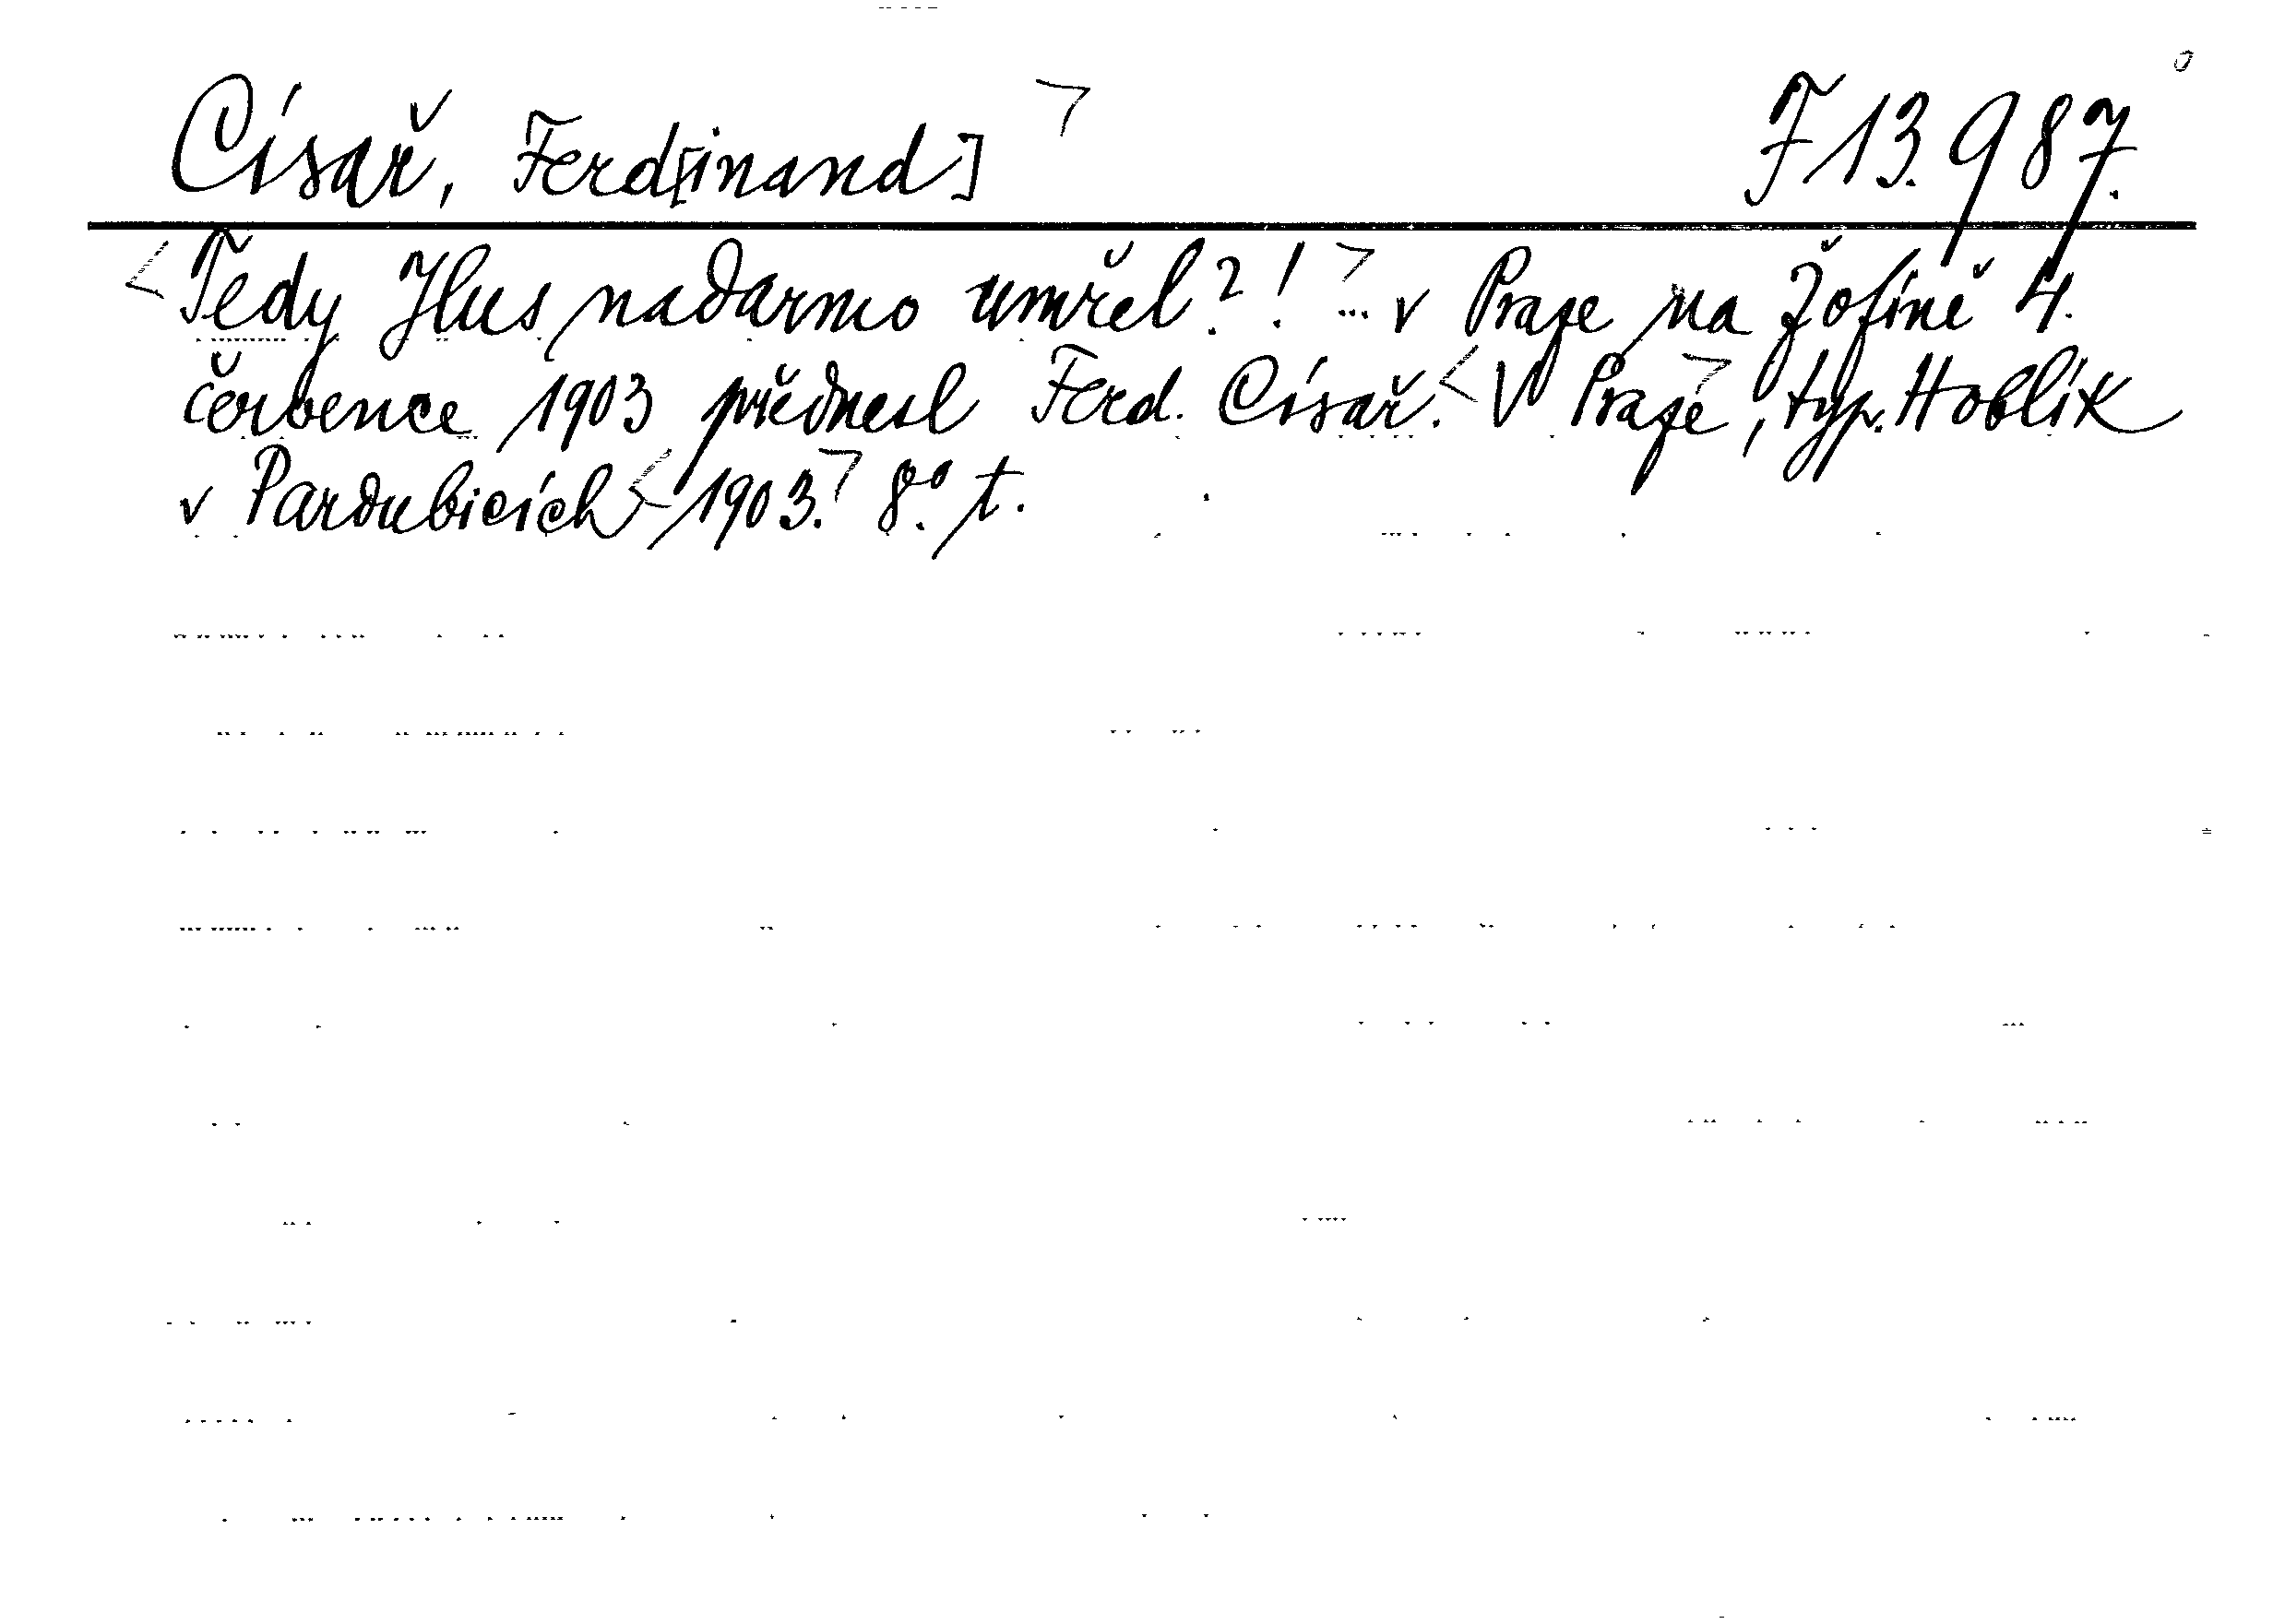 Císař, Ferd[inand] F 13.987.
Tedy Hus nadarmo umřel?! ... v Praze na Žofíně 4.
července 1903 přednesl Ferd. Císař. V Praze, typ. Hoblík
v Pardubicích 1903. 8° t.